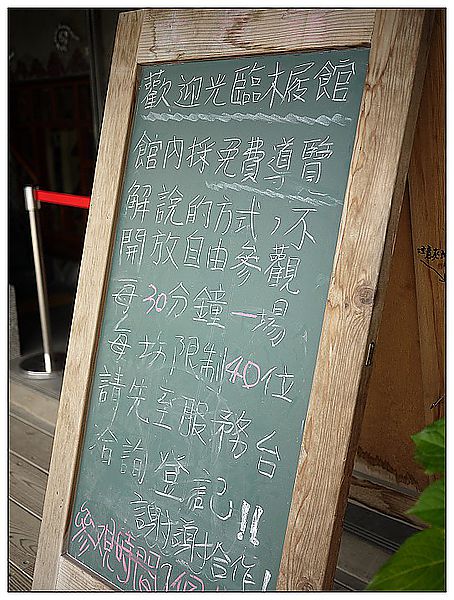 歡迎光臨木屐館
館內採免費導覽
解說的方式，不
開放自由參觀
每30分鐘一場
每場限制40位
請先至服務台
洽詢登記!!
謝謝合作!
參觀時間